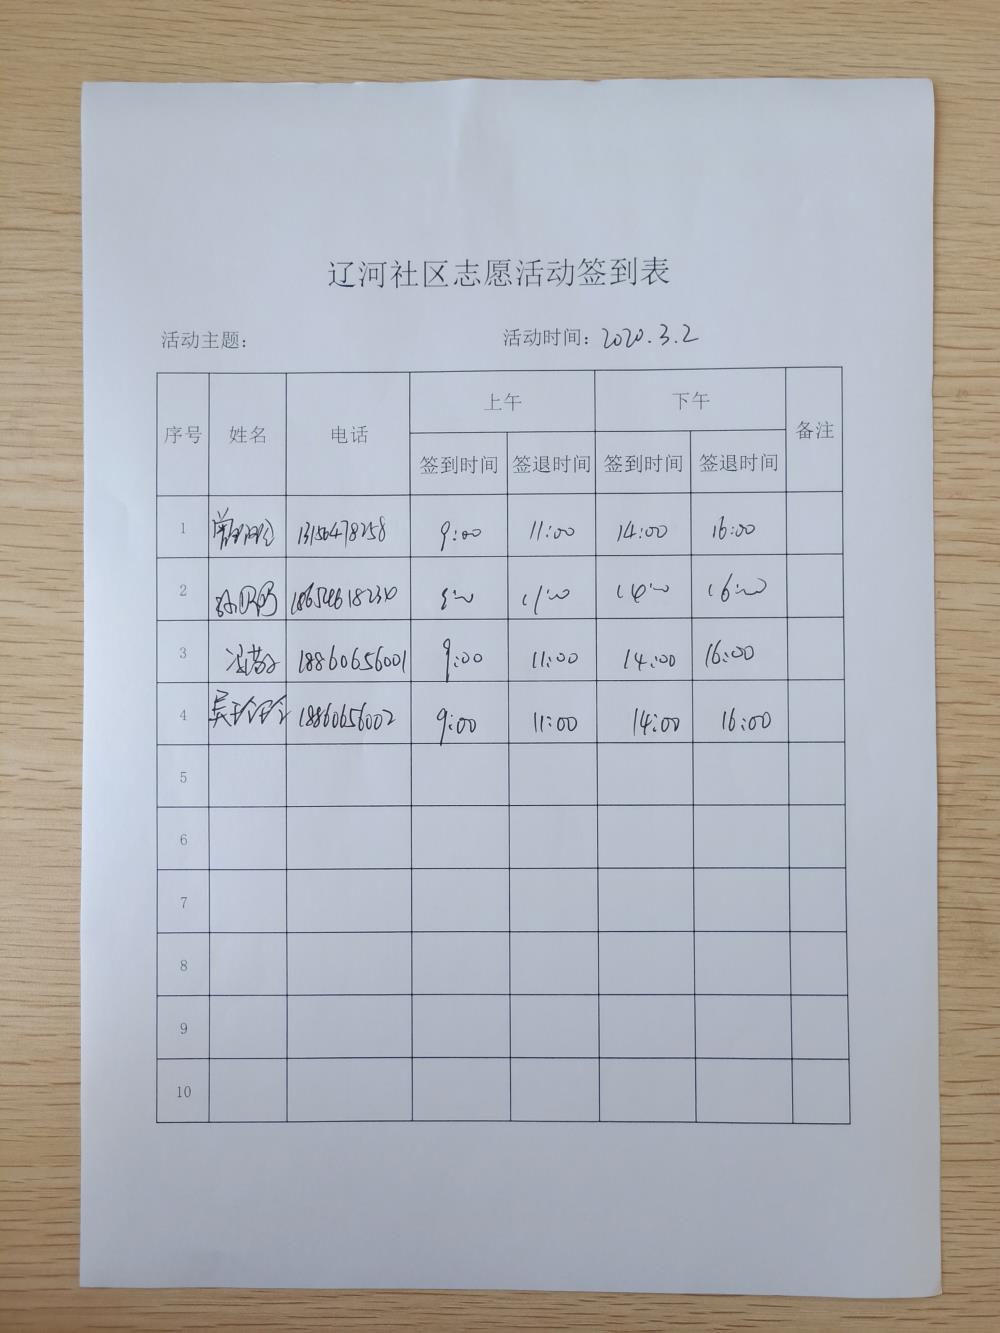 辽河社区志愿活动签到表
活动主题: 活动时间: 2020.3.2
序号 姓名 电话 上午 下午 备注
签到时间 签退时间 签到时间 签退时间
1 13156478258 9:00 11:00 14:00 16:00
2 9:00 11:00 14:00 16:00
3 18860656001 9:00 11:00 14:00 16:00
4 18860656002 9:00 11:00 14:00 16:00
5
6
7
8
9
10